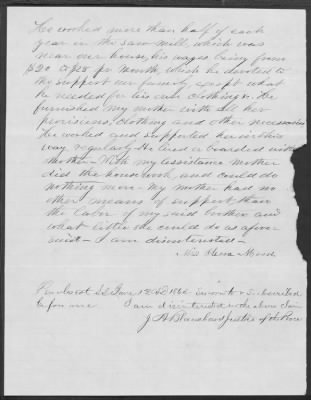 He worked more than half of each
year in the saw mill, which was
near our house, his wages being from
$20 to $25 pr month, which he devoted to
the support our family, except what
he needed for his own clothing. He
furnished my mother with all her
provisions, clothing and other necessaries
He worked and supported her in this
way regularly. He lived & boarded with
mother - With my assistance mother
did the housework, and could do
nothing more - My mother had no
other means of support than
the labor of my said brother and
what little she could do as afore-
said - I am disinterested -
Mrs
SS June 1866 Sworn to & subscribed
before me I am disinterested in the above claim
Justice of the Peace